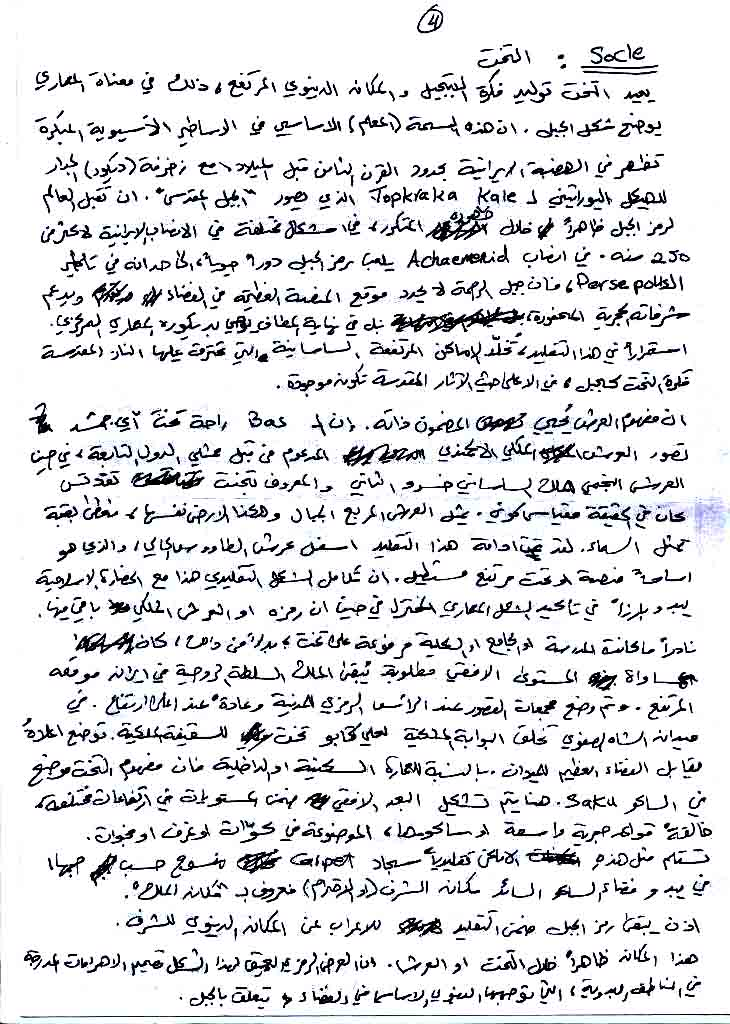 4
Socle : التخت
يعيد التخت توليد فكرة التبجيل والمكان الدنيوي المرتفع، وذلك في معناه المعماري
يوضح شكل الجبل. ان هذه السمة (المعلم) الاساسي في الاساطير الآسيوية المبكرة
تظهر في الهضبة الايرانية بحدود القرن الثامن قبل الميلاد مع زخرفة (ديكور) الجدار
للهيكل اليوراتيني لـ Topkraka Kale الذي يصور "الجبل المقدس". ان تقبل العالم
لرمز الجبل ظاهراً خلال ظهوره المتكرر، في اشكال مختلفة في الانصاب الايرانية لاكثر من
250 سنة. في انصاب Achaemenid يلعب رمز الجبل دوراً حيوياً،
Persepolis، فان جبل الرحمة لا يحدد موقع المنصة العظيمة في الفضاء ويدعم
شرفاته الحجرية المحفورة، بل في نهاية المطاف المعماري المركزي.
استمراراً في هذا التقليد، تخلّد الاماكن المرتفعة الساسانية التي تحترق عليها النار المقدسة
فكرة التخت كجبل، في الاعلى حيث الآثار المقدسة تكون موجودة.
ان مفهوم العرش يُحيي المضمون ذاته. وان الـ Bas راحة تخت آي جمشد
تصور العرش الملكي المدعوم من قبل ممثلي الدول التابعة، في حين
العرش النجمي للملك الساساني خسرو الثاني والمعروف بتخت تقديس
كان في الحقيقة مقياس كوني. يمثل العرش المربع الجبال وهكذا الارض نفسها، مغطى بقبة
تمثل السماء. لقد تمت ادامة هذا التقليد اسفل عرش الطاووس الحالي، والذي هو
اساساً منصة او تخت مرتفع مستطيل. ان تكامل الشكل التقليدي هذا مع الحضارة الاسلامية
يبدو بارزاً في تأكيد الشكل المعماري المختزل في حين ان رمزه او العرش الملكي باقي منها.
نادراً ما كانت المدرسة او الجامع او المحلة مرفوعة على تخت، بدلاً من ذلك، كان
المستوى الافقي مطلوبة تُبقى الملك السلطة الروحية في ايران موقعه
المرتفع. وتم وضع مجمعات القصور عند الرأس الرمزي للمدينة وعادةً عند اعلى ارتفاع. في
ميدان الشاه الصفوي تخلق البوابة الملكية لعلي كابو تخت للسقيفة الملكية. توضع اعمدةُ
مقابل الفضاء العظيم للميدان. بالنسبة للعمارة السكنية او الداخلية فان مفهوم التخت وضع
في الساكو Saku. هنا يتم تشكيل البعد الافقي ضمن المستويات في ارتفاعات مختلفة،
خالقةً قواعد حجرية واسعة او ساكوها، الموضوعة في كوّات او غرف او فجوات.
تستلم مثل هذه الاماكن تقليدياً سجاد Carpet منسوج حسب حجمها،
في يبدو فضاء الساكو السائد مكان الشرف (او الاحترام) معروف بـ "مكان الملك".
اذن يبقى رمز الجبل ضمن التقليد للاعراب عن المكان الدنيوي للشرف.
هذا المكان ظاهراً خلال التخت او العرش. ان العرض الرمزي العميق لهذا الشكل تقسيم الاهرامات المدرجة
في المناطق البدوية، التي توجهها الدنيوي الاساسي في الفضاء يتعلق بالجبل.